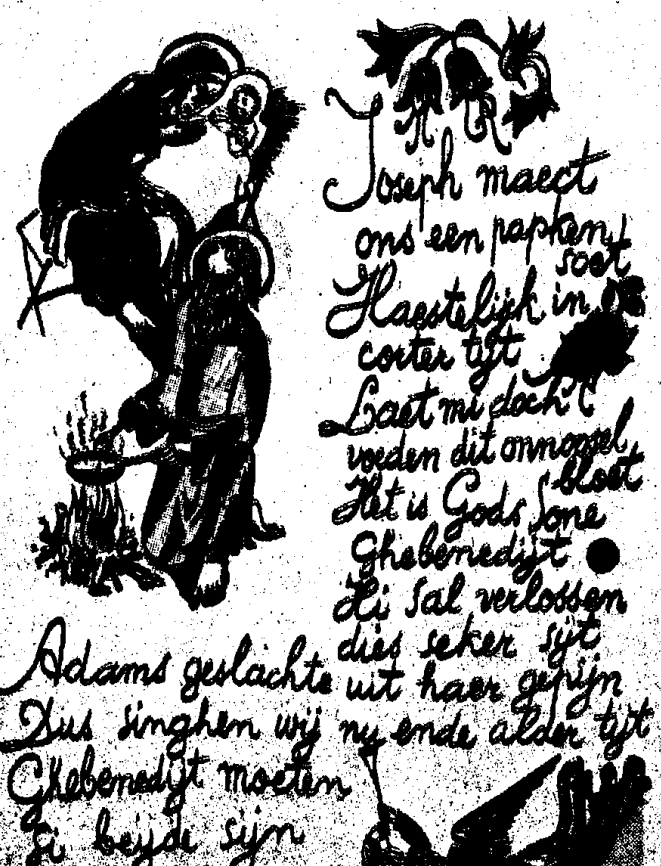 Joseph maect
ons een papken
soet
Haestelijk in
corter tijt
Laet mi doch
voeden dit onnoosel
bloet
Het is Gods Sone
Ghebenedijt
Hi sal verlossen
dies seker sijt
Adams geslachte uit haer gepijn
Dus singhen wij nu ende alder tijt
Ghebenedijt moeten
si beijde sijn